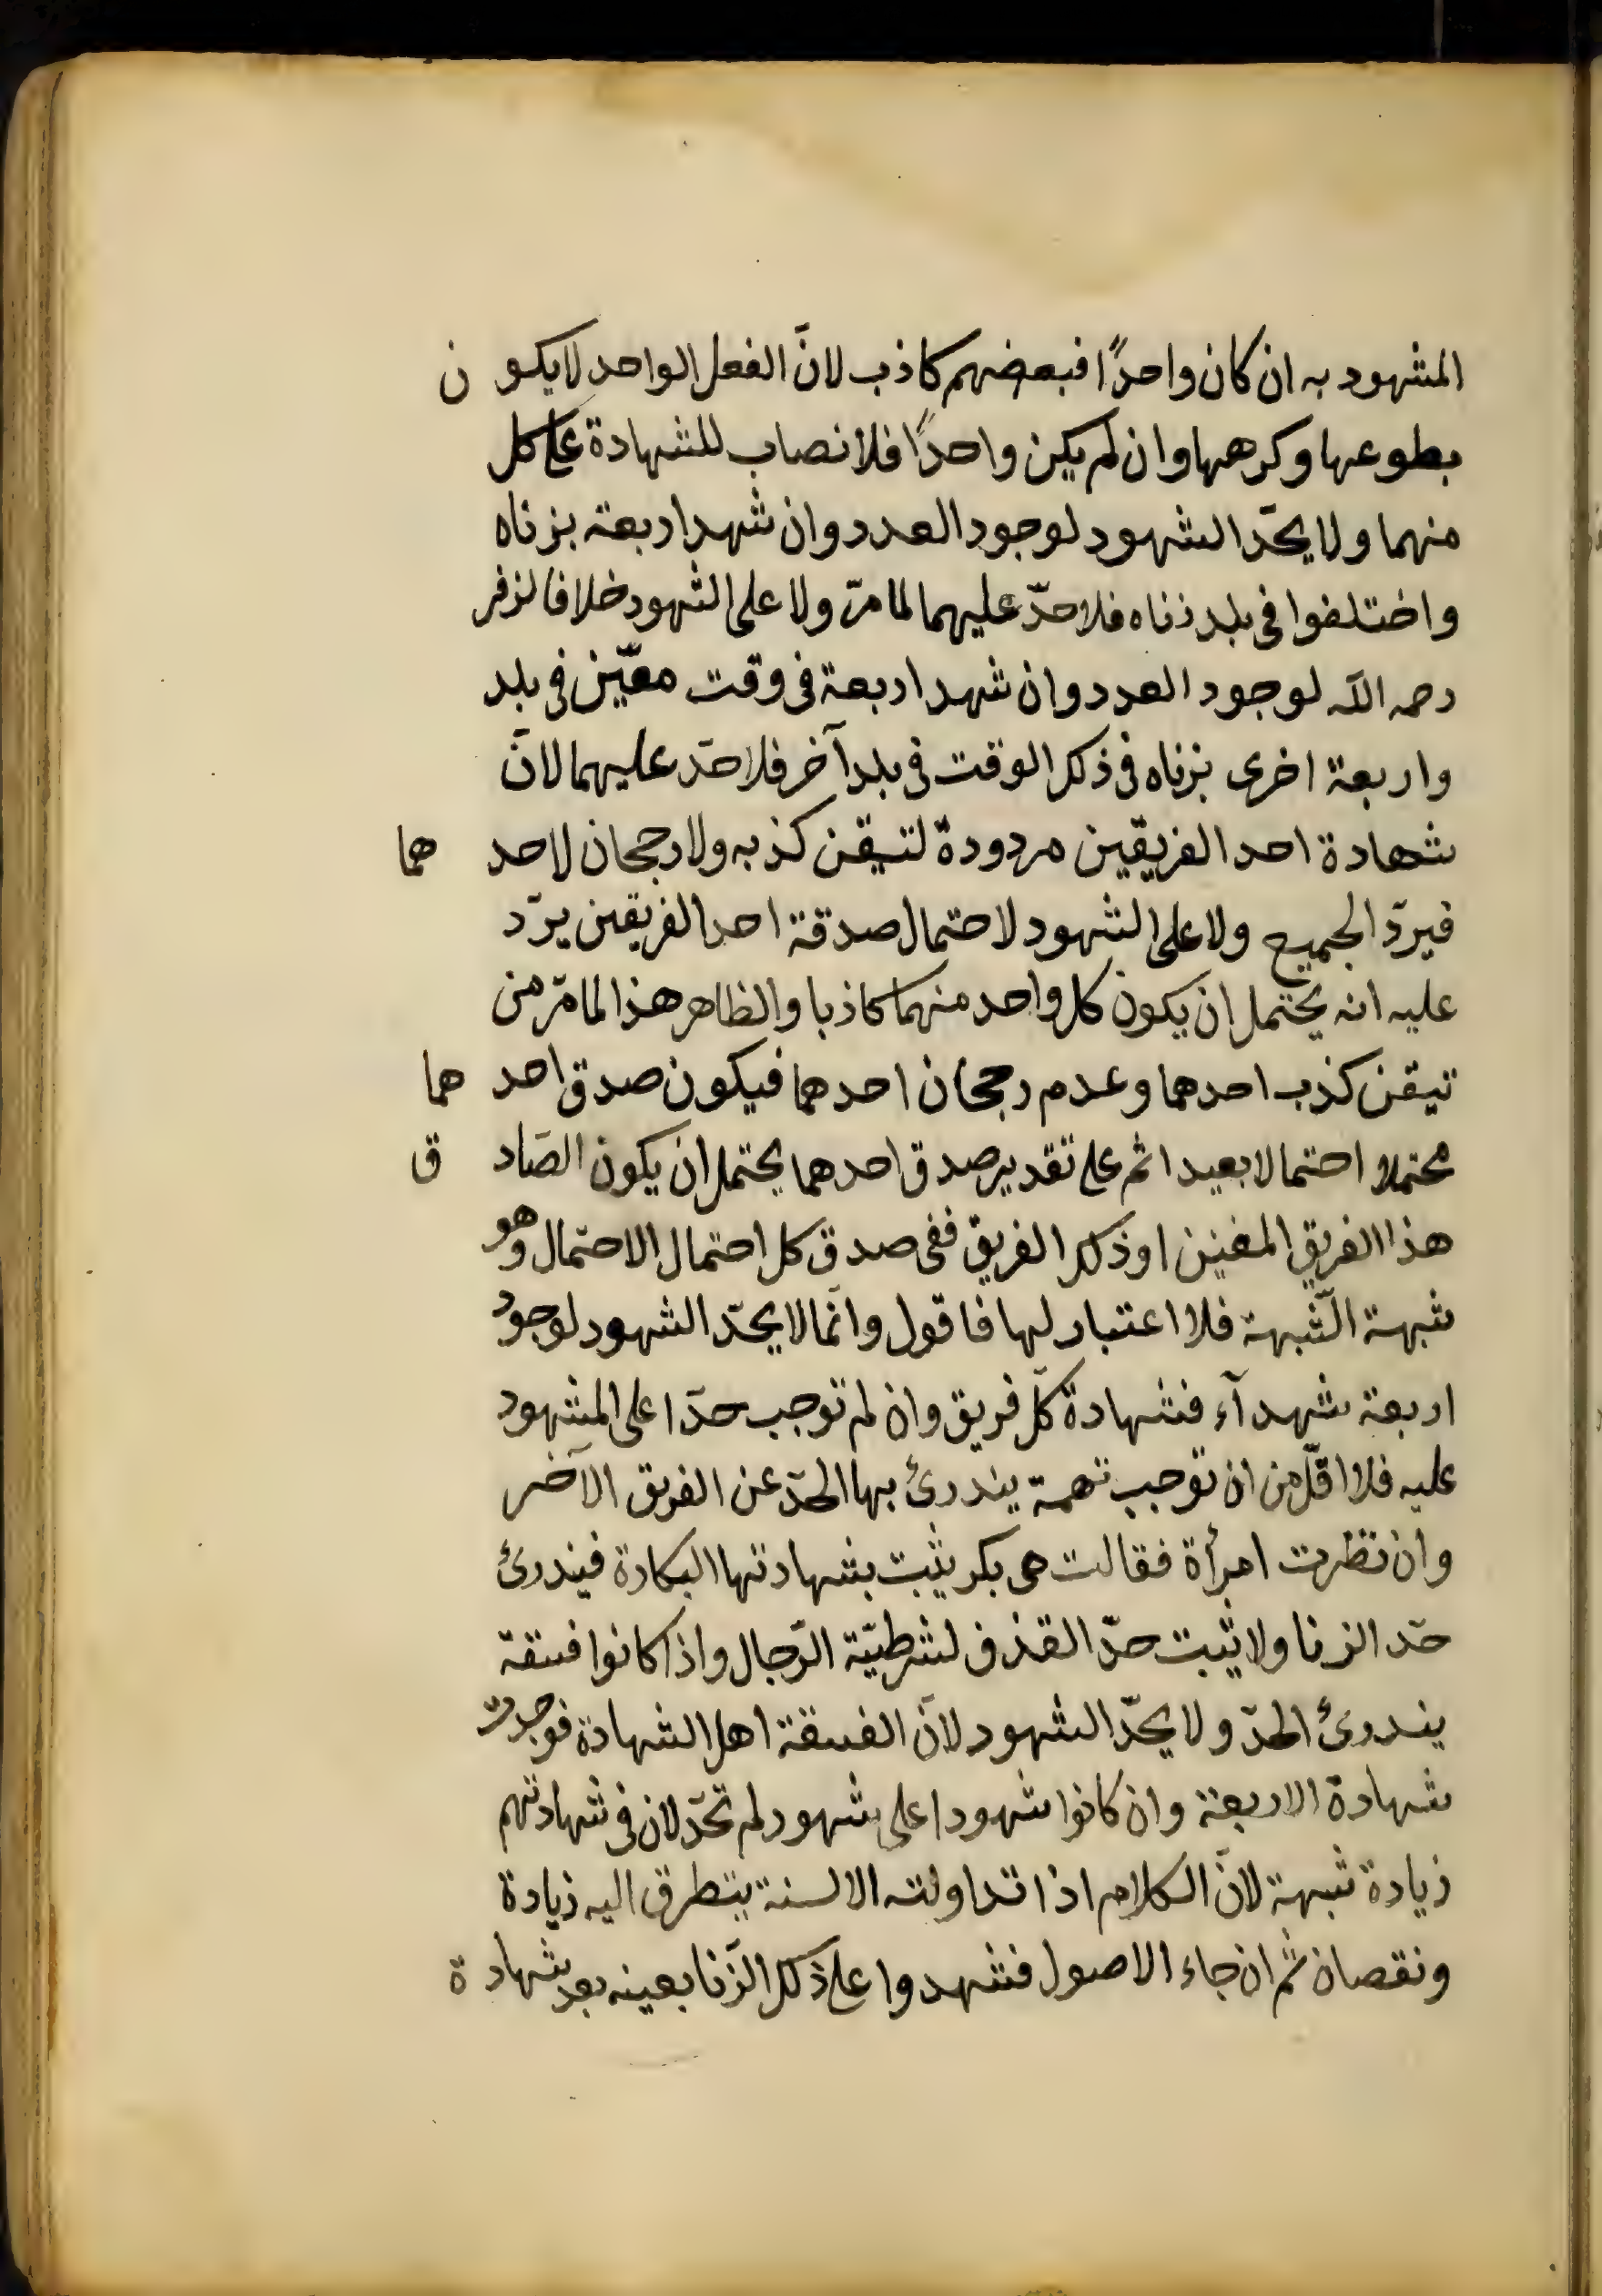 المشهود به ان كان واحدًا فبعضهم كاذب لانّ الفعل الواحد لا يكون
بطوعها وكرهها وان لم يكن واحدًا فلا نصاب للشهادة على كل
منهما ولا يحدّ الشهود لوجود العدد وان شهد اربعة بزناه
واختلفوا فى بلد زناه فلا حدّ عليهما لما مرّ ولا على الشهود خلافا لزفر
رحمه الله لوجود العدد وان شهد اربعة فى وقت معيّن فى بلد
واربعة اخرى بزناه فى ذلك الوقت فى بلد آخر فلا حدّ عليهما لانّ
شهادة احد الفريقين مردودة لتيقن كذبه ولا رجحان لاحدهما
فيردّ الجميع ولا على الشهود لاحتمال صدقة احد الفريقين يرّد
عليه انه يحتمل ان يكون كل واحد منهما كاذبا والظاهر هذا لما مرّ من
تيقن كذب احدهما وعدم رجحان احدهما فيكون صدق احدهما
محتملا احتمالا بعيدا ثم على تقدير صدق احدهما يحتمل ان يكون الصّادق
هذا الفريق المعين او ذلك الفريق ففى صدق كل احتمال الاحتمال وهو
شبهة الشّبهة فلا اعتبار لها فاقول وانّما لا يحدّ الشهود لوجود
اربعة شهدآء فشهادة كلّ فريق وان لم توجب حدّا على المشهود
عليه فلا اقلّ من ان توجب تهمة يندرئ بها الحدّ عن الفريق الآخر
وان نظرت امرأة فقالت هى بكر يثبت بشهادتها البكارة فيندرئ
حدّ الزنا ولا يثبت حدّ القذف لشرطيّة الرّجال واذا كانوا فسقة
يندرئ الحدّ ولا يحدّ الشهود لانّ الفسقة اهل الشهادة فوجدت
شهادة الاربعة وان كانوا شهودا على شهود لم تحدّ لان فى شهادتهم
زيادة شبهة لانّ الكلام اذا تداولته الالسنة يتطرق اليه زيادة
ونقصان ثمّ ان جاء الاصول فشهدوا على ذلك الزّنا بعينه بعد شهادة